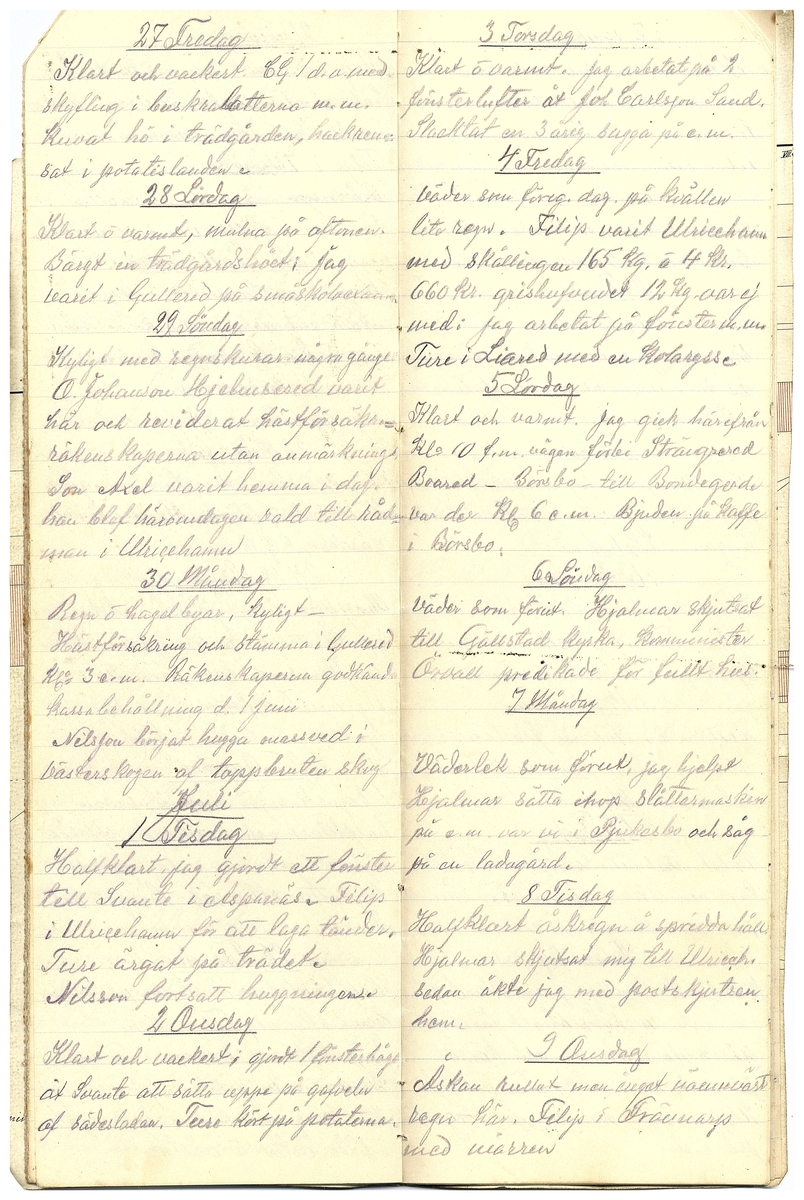 27 Fredag
Klart och vackert. CG 1 d.v. med
skyfling i buskrabatterna m.m.
Kuvat hö i trädgården, hackren=
sat i potatislanden.
28 Lördag
Klart ö varmt, mulna på aftonen.
Bärgt in trädgårdshöet; jag
varit i Gullered på
29 Söndag
Kyligt med regnskurar några gånger
O. Johanson Hjelmsered varit
här och reviderat hästförsäkr=
räkenskaperna utan anmärkning
Son Axel varit hemma i dag.
han blef häromdagen vald till råd=
man i Ulricehamn
30 Måndag
Regn ö hagelbyar, kyligt –
Hästförsäkring och stämma i Gullered
Kl. 3 e.m. Räkenskaperna godkända
kassabehållning d. 1 juni
Nilsson börjat hugga massved i
Västerskogen af toppbruten skog
Juli
1 Tisdag
Halfklart. jag gjordt ett fönster
till Svante i Aspanäs. Filip
i Ulricehamn för att laga tänder.
Ture ärgat på trädet.
Nilsson fortsatt huggningen.
2 Onsdag
Klart och vackert; gjordt 1 fönsterbåge
åt Svante att sätta uppe på gafveln
af sädesladan. Ture kört på potaterna.
3 Torsdag
Klart ö varmt. jag arbetat på 2
fönsterlufter åt Joh Carlsson Sand.
Slacktat en 3 årig sugga på e.m.
4 Fredag
Väder som föreg. dag. på kvällen
lite regn. Filip varit Ulricehamn
med skållingen 165 Kg. á 4 Kr.
660 Kr. grishufvudet 12 Kg. var ej
med; jag arbetat på fönster m.m.
Ture i Liared med en kolaryss.
5 Lördag
Klart och varmt. jag gick härifrån
Kl. 10 f.m. vägen förbi Strängsered
Boared – Börsbo – till Bondegärde
var der Kl. 6 e.m. Bjuden på kaffe
i Börsbo.
6 Söndag
Väder som förut. Hjalmar skjutsat
till Gällstad kyrka, komminister
Örvall predikade för fullt hus.
7 Måndag
Väderlek som förut, jag hjelpt
Hjalmar sätta ihop slåttermaskin
på e.m. var vi i Pjukasbo och såg
på en ladugård.
8 Tisdag
Halfklart åskregn å spridda håll
Hjalmar skjutsat mig till Ulriceh.
sedan åkte jag med postskjutsen
hem.
9 Onsdag
Åskan rullat men inget nämnvärt
regn här. Filip i Frövnarp
med märren